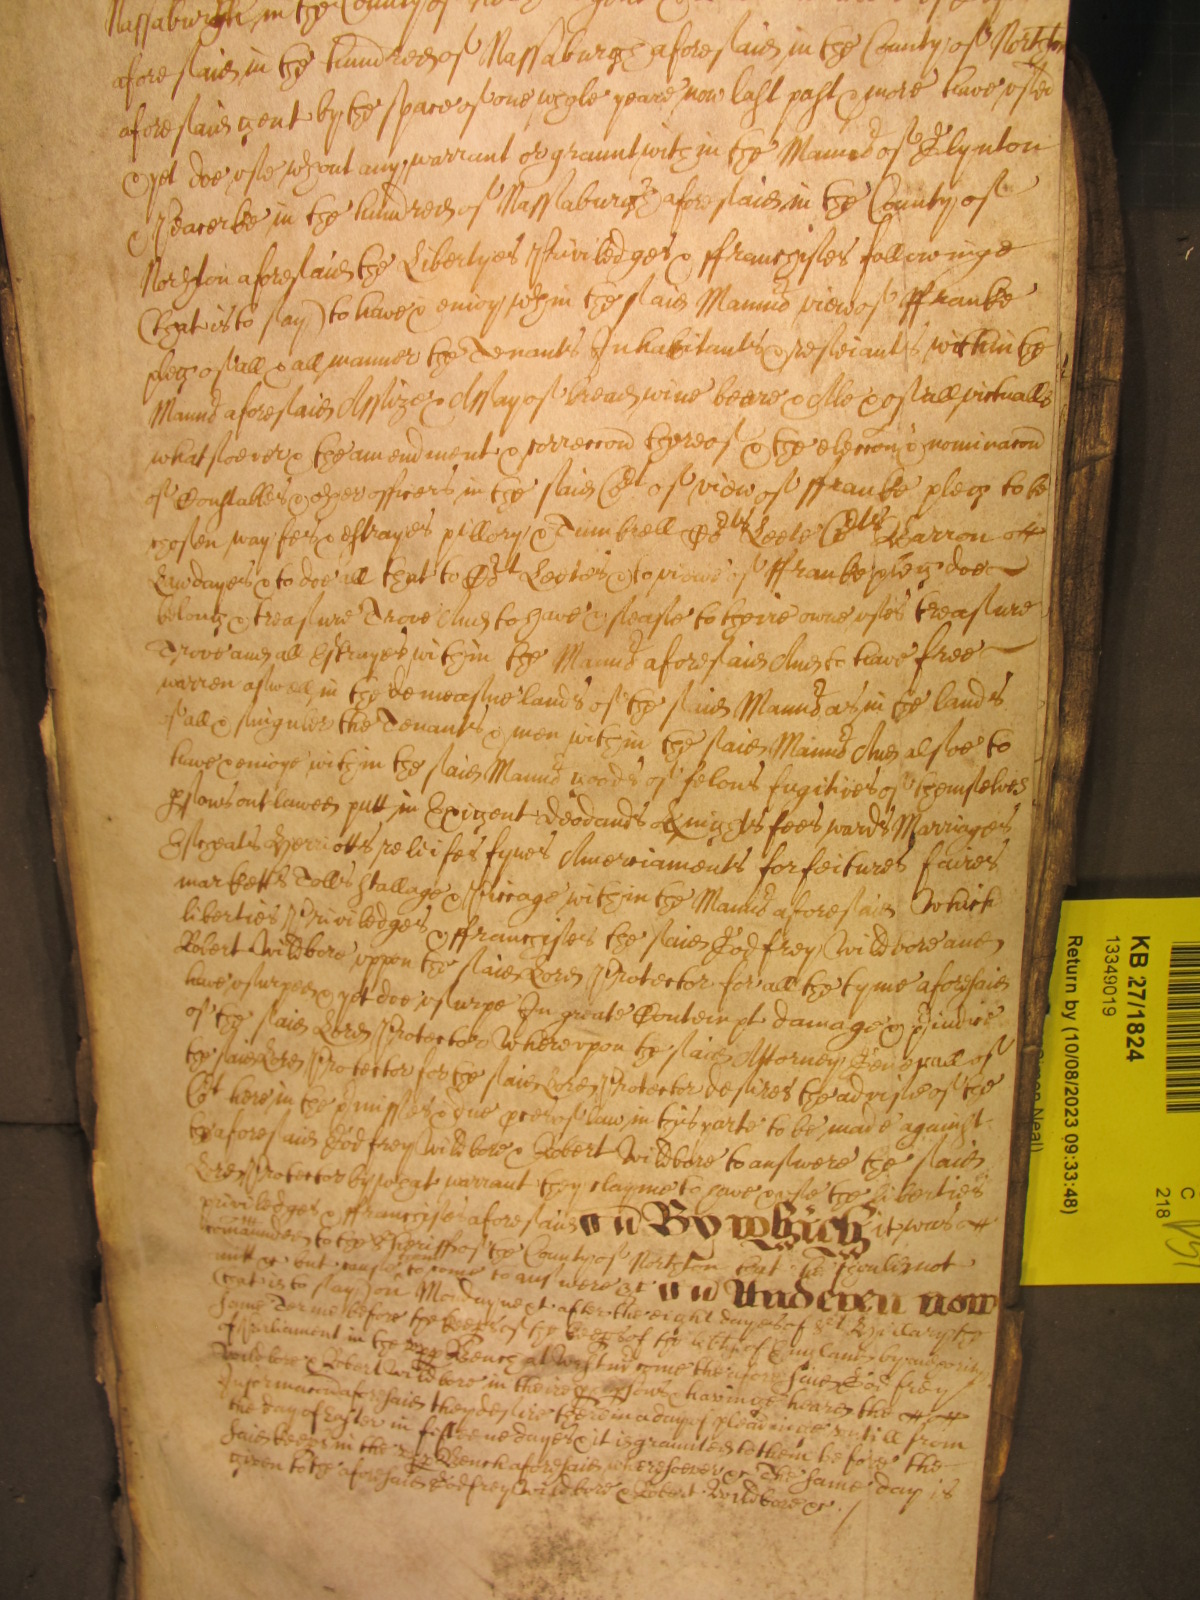 Nassaburgh in the County of
aforesaid in the hundred of Nassaburgh aforesaid in the County of Northton
aforesaid gent by the space of one whole yeare now last past & more have used
& yet doe use wthout any warrant or graunt within the Mannor of Glynton
& Peacerke in the hundred of Nassaburgh aforesaid in the County of
Northton aforesaid the Libertyes Priviledges & ffranchises followinge
(that is to say) to have & enioy wthin the said Mannor view of ffranke
pledg of all & all manner the Tenants Inhabitants & resciants within the
Mannor aforesaid Assize & Assay of bread wine beere & Ale & of all victualls
whatsoever & the amendment & correccon thereof & the eleccon & nominacon
of Constables & other officers in the said Cort of view of ffranke pledg to be
chosen wayfes & estrayes pillory & Tumbrell Corts Leete Corts Barron
Lawdayes & to doe all that to Cort Leetes & to views of ffranke pledg doe
belong & treasure Trove And to have & sease to their owne uses treasure
Trove and all Estrayes within the Mannor aforesaid And to have free
warren aswell in the demeasne lands of the said Mannor as in the lands
of all & singuler the Tenants & men within the said Mannor And alsoe to
have & enioye within the said Mannor goods of felons fugitives of themselves
psons outlawed putt in Exigent Deodands Knights fees wards Marriages
Escheats Herriotts releifes fynes Amerciaments forfeitures faires
marketts Tolls stallage & Piccage within the Mannor aforesaid Which
liberties Priviledges & ffranchises the said Godfrey Wildbore and
Robert Wildbore uppon the said Lord Protector for all the tyme aforesaid
have usurped & yet doe usurpe In greate Contempt damage & piudice
of the said Lord Protector Whereupon the said Attorney Generall of
the said Lord Protector for the said Lord Protector desires the advise of the
Cort here in the pmisses & due pces of law in this parte to be made against
the aforesaid Godfrey Wildbore & Robert Wildbore to answere the said
Lord Protector by what warrant they clayme to have & use the liberties
priviledges & ffranchises aforesaid And By which it was
comaunded to the Sheriffe of the County of Northton that he should not
omitt &c but cause them to come to answere &c And Under now
(that is to say) on Monday next after the eight dayes of St Hillary the
same Terme before the keepers of the liberty of England by authority
of Parliament in the upp Bench at Westm come the aforesaid Godfrey
Wildbore & Robert Wildbore in their pp psons & havinge heard the
Informacon aforesaid they desire there in a day of pleadinge untill from
the day of Easter in fifteene dayes & it is graunted to them before the
said keeps in the upp Bench aforesaid wheresoever &c The same day is
given to the aforesaid Godfrey Wildbore & Robert Wildbore &c
KB 27/1824
13349019
Return by (10/08/2023 09:33:48)
Neal)
C
218